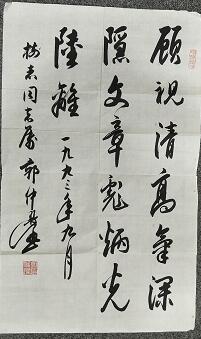 顾视清高气深
隐文章彪炳光
陆离 一九九三年九月
梅素同志属 郭仲